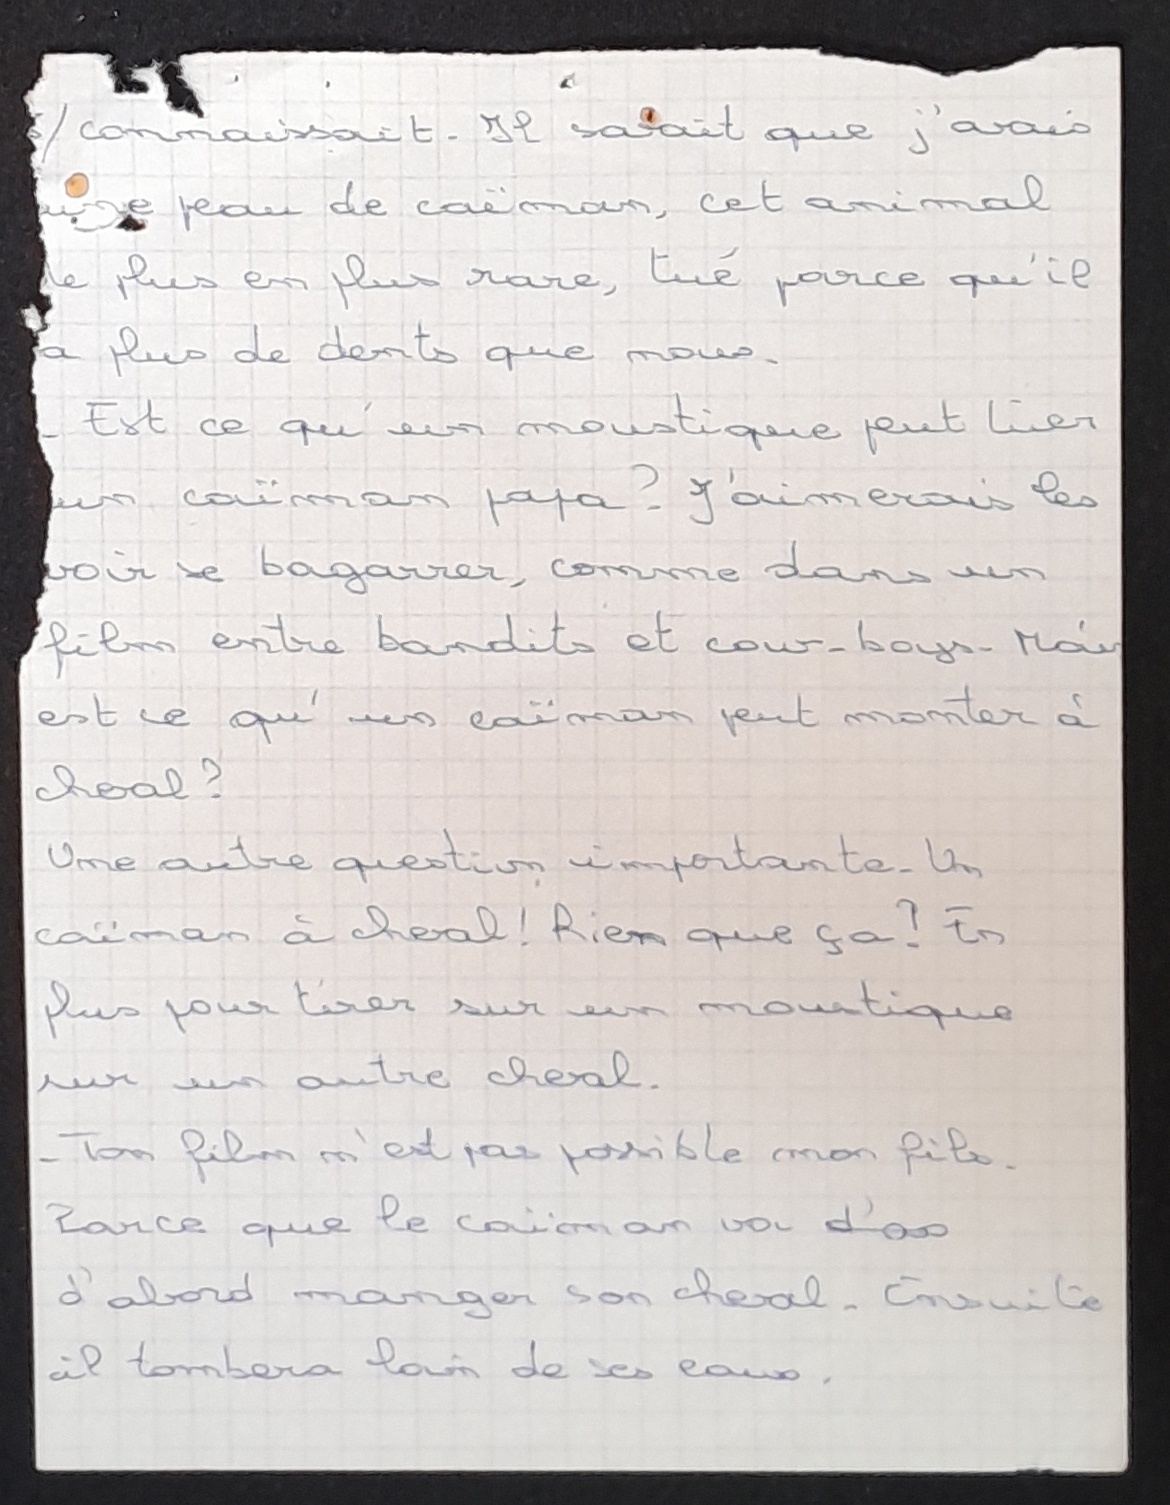 / connaissait. Il savait que j'avais
une peau de caïman, cet animal
de plus en plus rare, tué parce qu'il
a plus de dents que nous.
- Est ce qu'un moustique peut tuer
un caïman papa? J'aimerais les
voir se bagarrer, comme dans un
film entre bandits et cow-boys. Mais
est ce qu'un caïman peut monter à
cheval?
Une autre question importante. Un
caïman à cheval! Rien que ça? En
plus pour tirer sur un moustique
sur un autre cheval.
- Ton film n'est pas possible mon fils.
Parce que le caïman va
d'abord manger son cheval. Ensuite
il tombera loin de ses eaux.